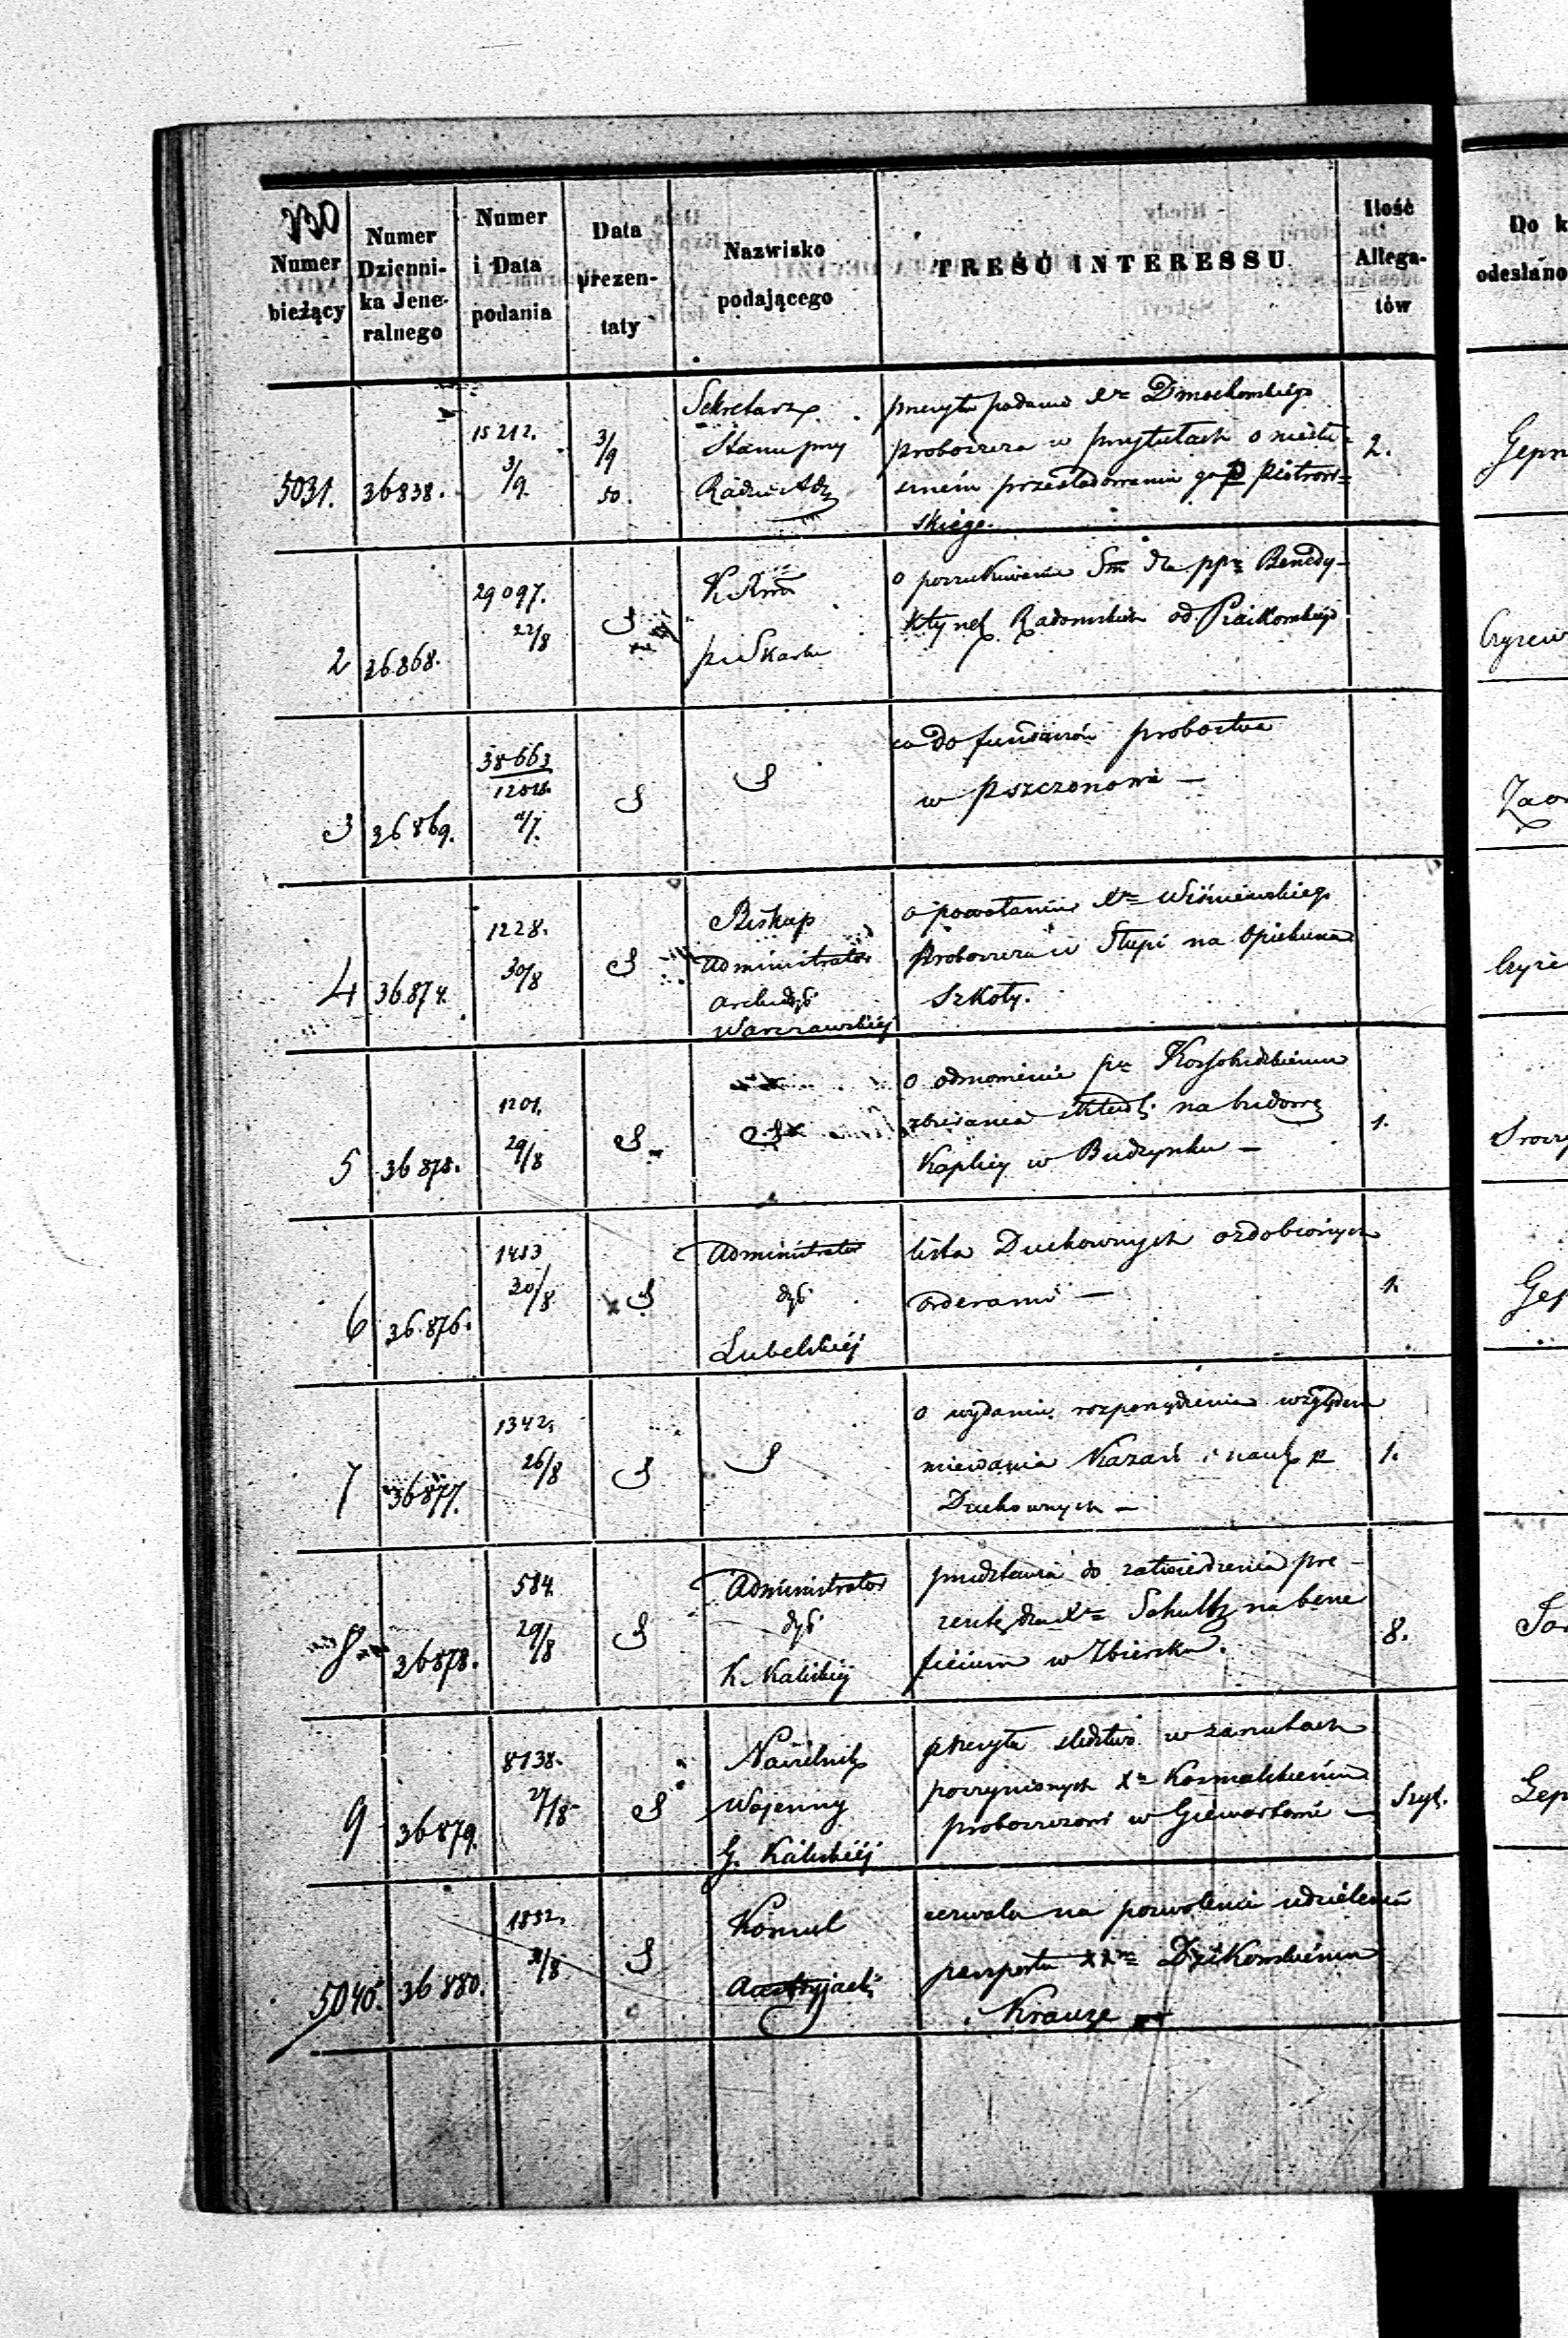 Numer bieżący
Numer Dzienni-
ka Jene-
ralnego
Numer
i Data
podania
Data
prezen-
taty
Nazwisko
podającego
TREŚĆ INTERESSU
Ilość
Allega-
tów
Do k
odesłano
5031. 36838. 15212. 3/9. 3/9 50.
Sekretarz
Stanu przy
Radzie Adm
przesyła podanie Xa Dmochowskiego
proboszcza w Przytułach o niesłu-
sznem prześladowaniu go p Piotrow-
skiego.
2.
Gepn
2 36868. 29097. 22/8 S
K.
p i Skarbu
o poszukiwaniu Sm dla ppn Benedy-
ktynek Radomskich od
Czyzew
3 36869. 38663
12021.
S S
co do funduszów probostwa
w Pszczonowie —
Zao
4 36874. 1228. 30/8 S
Biskup
Administrator
Archidyi
Warszawskiej
o powołaniu Xa Wiśniewskiego
Proboszcza w Słupi na Opiekuna
Szkoły.
Czyże
5 36875. 1201. 29/8 S S
o odmowienie pu Kossobudzkiemu
zbierania składek na budowę
Kaplicy w Budzynku —
1.
6 36.876. 1413 30/8 S
Administrator
dyi
Lubelskiéj
lista Duchownych ozdobionych
orderami —
1.
Gep
7 36877. 1342. 26/8 S S
o wydaniu rozporządzenia względem
miewania Kazań i nauk p
Duchownych —
1.
8 36878. 584. 29/8 S
Administrator
dyi
K. Kaliskiéj
przedstawia do zatwierdzenia pre-
zentę dla Xa Schultz na bene
ficium w Zbiersku.
8.
9 36879. 8138. 27/8 S
Naczelnik
Wojenny
G. Kaliskiéj
przesyła śledztwo w zarzutach
poczynionych Xu Kosmalskiemu
proboszczowi w Giewartowie —
Szyt.
Gep
5040. 36880. 1832. 31/8 S
Konsul
Austryjacki
zezwala na pozwolenie udzielenia
paszportu XXom Dzikowskiemu
i Krauze